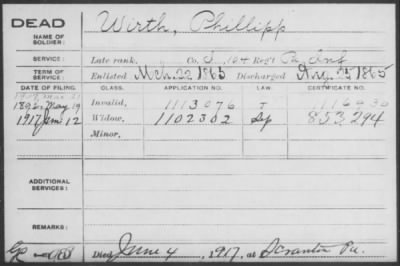 DEAD
NAME OF SOLDIER: Wirth, Phillipp
SERVICE: Late rank, Co. I, 104 Reg't Pa Inf
TERM OF SERVICE: Enlisted Mch. 22 1865 Discharged Aug. 25 1865
DATE OF FILING. CLASS. APPLICATION NO. LAW. CERTIFICATE NO.
1892 May 19 Invalid, 1113076 1116930
1917 Jun 12 Widow, 1102302 853,294
Minor,
ADDITIONAL SERVICES:
REMARKS:
Died June 4, 1917, at Scranton Pa.